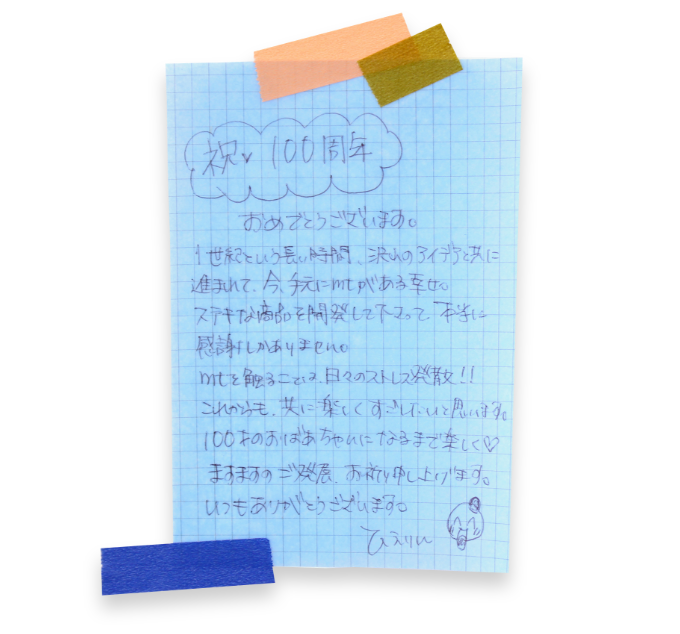 祝♥ 100周年
おめでとうございます。
1世紀という長い時間、沢山のアイデアと共に
進まれて、今、手元にmtがある幸せ。
ステキな商品を開発して下さって、本当に
感謝しかありません。
mtを触ることは、日々のストレス発散!!
これからも、共に楽しくすごしたいと思います。
100才のおばあちゃんになるまで楽しく♡
ますますのご発展、お祈り申し上げます。
いつもありがとうございます。
ひえりん